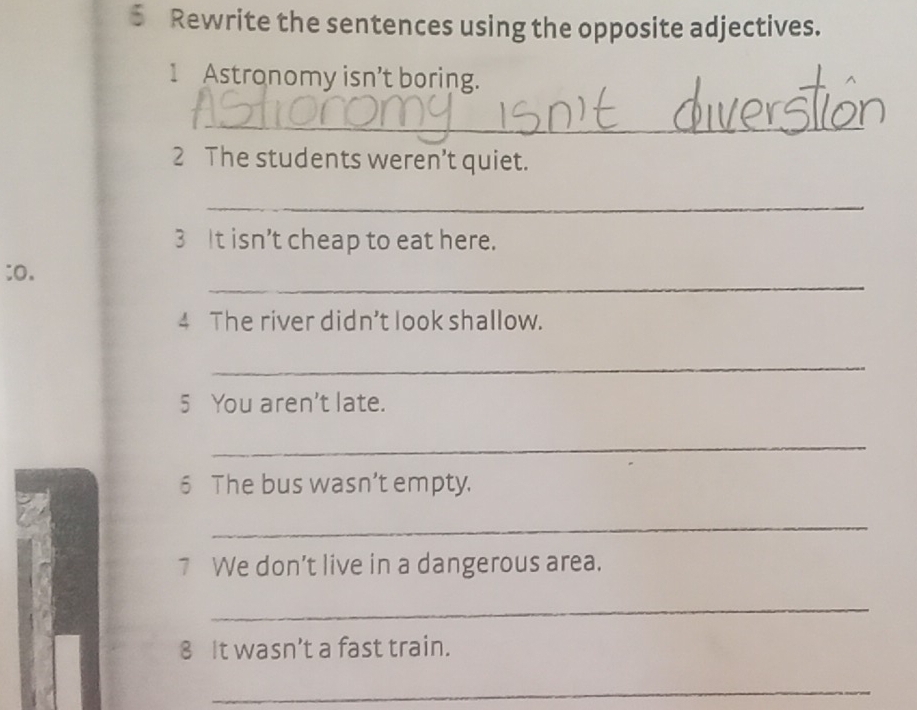 5 Rewrite the sentences using the opposite adjectives.
1 Astronomy isn't boring.
Astronomy isn't diverstiôn
2 The students weren't quiet.
3 It isn't cheap to eat here.
:o.
4 The river didn't look shallow.
5 You aren't late.
6 The bus wasn't empty.
7 We don't live in a dangerous area.
8 It wasn't a fast train.